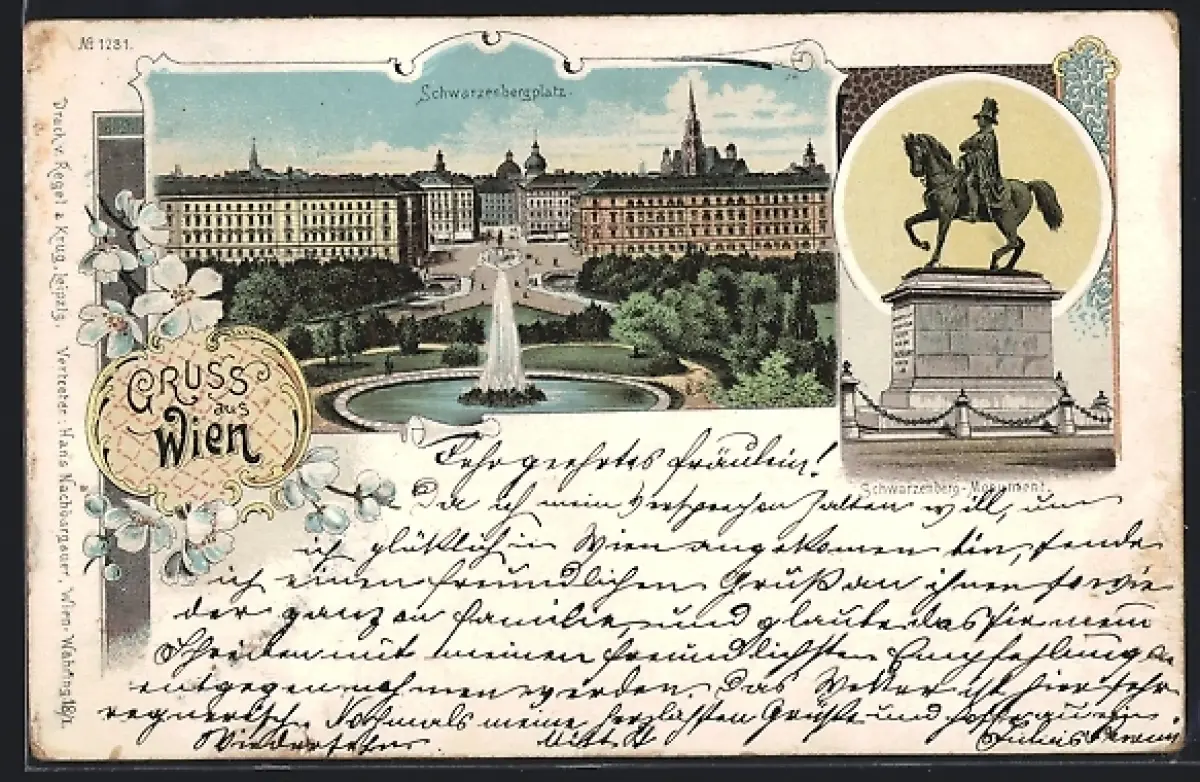 № 1231.
Schwarzenbergplatz.
Druck v. Regel & Krug, Leipzig. Vertreter: Hans Nachbargauer, Wien-Währing 18/1.
GRUSS
aus
Wien
Schwarzenberg-Monument.
Sehr geehrtes Fräulein!
Da ich mein Versprechen halten will, und
ich glüklich in Wien angekomen bin, sende
ich einen freundlichen Gruß an ihnen sowie
der ganzen Familie, und glaube das Sie mein
Schreiben mit meinen freundlichsten Empfehlungen
entgegennehmen werden. Das Wetter ist hier sehr
regnerisch. Nochmals meine herzlichsten Grüße und hoffe auf ein
Wiedersehen